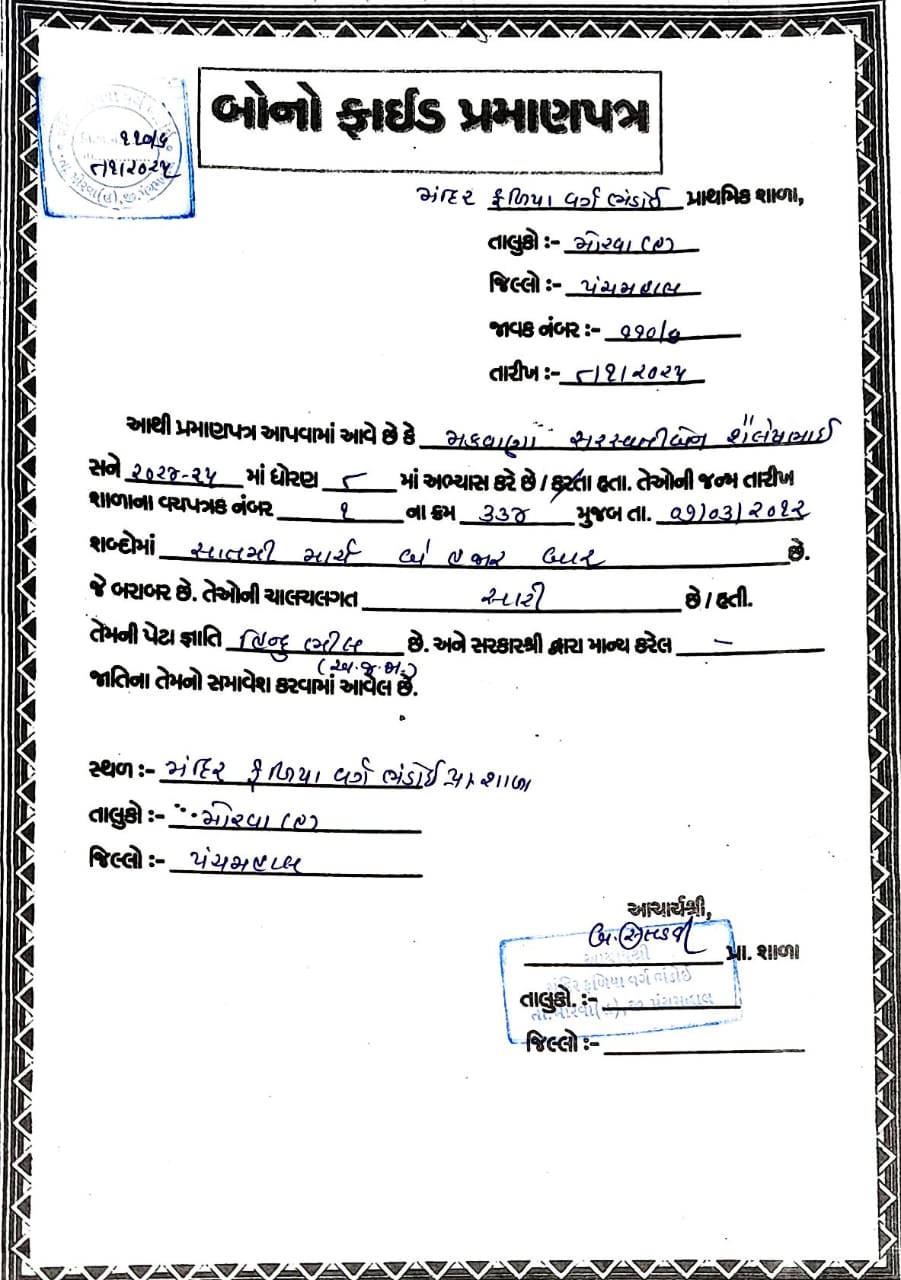 બોનો ફાઈડ પ્રમાણપત્ર
૧૧૦/૬
૮/૧/૨૦૨૫
મંદિર ફળિયા વર્ગ ભંડોઈ પ્રાથમિક શાળા,
તાલુકો :- મોરવા (હ)
જિલ્લો :- પંચમહાલ
જાવક નંબર :- ૧૧૦/
તારીખ :- ૮/૧/૨૦૨૫
આથી પ્રમાણપત્ર આપવામાં આવે છે કે મકવાણા સરસ્વતીબેન શૈલેષભાઈ
સને ૨૦૨૪-૨૫ માં ધોરણ ૮ માં અભ્યાસ કરે છે / કરતા હતા. તેઓની જન્મ તારીખ
શાળાના વયપત્રક નંબર ૧ ના ક્રમ ૩૩૪ મુજબ તા. ૦૭/૦૩/૨૦૧૨
શબ્દોમાં સાતમી માર્ચ બે હજાર બાર છે.
જે બરાબર છે. તેઓની ચાલચલગત સારી છે / હતી.
તેમની પેટા જ્ઞાતિ હિન્દુ ભીલ છે. અને સરકારશ્રી દ્વારા માન્ય કરેલ —
(અ.જ.જા.)
જાતિના તેમનો સમાવેશ કરવામાં આવેલ છે.
સ્થળ :- મંદિર ફળિયા વર્ગ ભંડોઈ પ્રા. શાળા
તાલુકો :- મોરવા (હ)
જિલ્લો :- પંચમહાલ
આચાર્યશ્રી,
પ્રા. શાળા
આચાર્યશ્રી
મંદિર ફળિયા વર્ગ ભંડોઈ
તાલુકો. :-
તા.મોરવા(હ), જી. પંચમહાલ
જિલ્લો :-